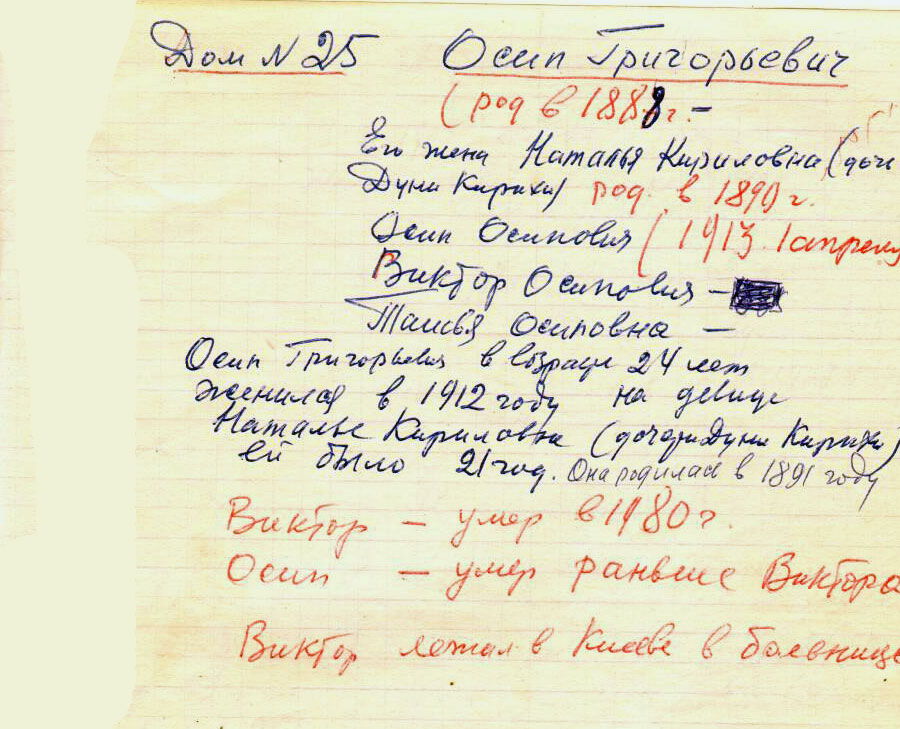 Дом N 25 Осип Григорьевич
(род в 1888 г. –
Его жена Наталья Кириловна (доч
Дуни Кирихи) род. в 1890 г.
Осип Осипович (1913 1 апреля
Виктор Осипович –
Таисья Осиповна –
Осип Григорьевич в возрасте 24 лет
женился в 1912 году на девице
Наталье Кириловне (дочери Дуни Кирихи)
ей было 21 год. Она родилась в 1891 году
Виктор – умер в 1980 г.
Осип – умер раньше Виктора
Виктор лежал в Киеве в больнице